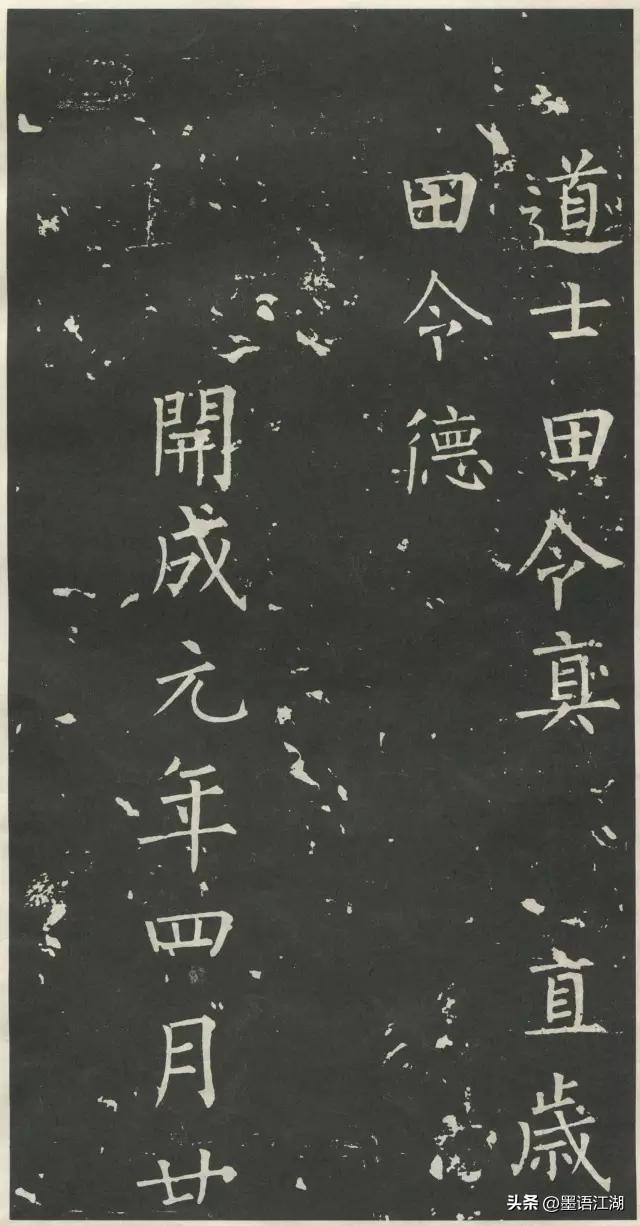 道士田令真 直歲
田令德
開成元年四月廿
头条 @墨语江湖